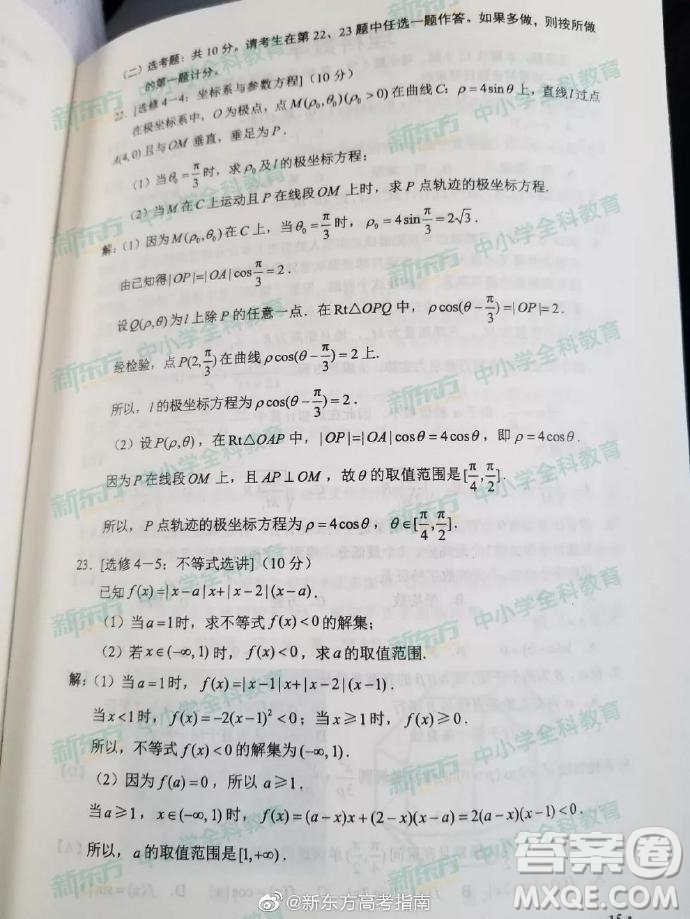 （二）选考题：共 10 分。请考生在第 22、23 题中任选一题作答。如果多做，则按所做
的第一题计分。
22. [选修 4－4：坐标系与参数方程]（10 分）
在极坐标系中，O为极点，点M(ρ₀,θ₀)(ρ₀>0)在曲线C：ρ=4sinθ上，直线l过点
A(4,0)且与OM垂直，垂足为P.
（1）当θ₀=π/3时，求ρ₀及l的极坐标方程；
（2）当M在C上运动且P在线段OM上时，求P点轨迹的极坐标方程.
解：（1）因为M(ρ₀,θ₀)在C上，当θ₀=π/3时，ρ₀=4sinπ/3=2√3.
由已知得|OP|=|OA|cosπ/3=2.
设Q(ρ,θ)为l上除P的任意一点．在Rt△OPQ中，ρcos(θ−π/3)=|OP|=2.
经检验，点P(2,π/3)在曲线ρcos(θ−π/3)=2上.
所以，l的极坐标方程为ρcos(θ−π/3)=2.
（2）设P(ρ,θ)，在Rt△OAP中，|OP|=|OA|cosθ=4cosθ，即ρ=4cosθ.
因为P在线段OM上，且AP⊥OM，故θ的取值范围是[π/4,π/2].
所以，P点轨迹的极坐标方程为ρ=4cosθ，θ∈[π/4,π/2].
23. [选修 4－5：不等式选讲]（10 分）
已知f(x)=|x−a|x+|x−2|(x−a).
（1）当a=1时，求不等式f(x)<0的解集；
（2）若x∈(−∞,1)时，f(x)<0，求a的取值范围.
解：（1）当a=1时，f(x)=|x−1|x+|x−2|(x−1).
当x<1时，f(x)=−2(x−1)²<0；当x≥1时，f(x)≥0.
所以，不等式f(x)<0的解集为(−∞,1).
（2）因为f(a)=0，所以a≥1.
当a≥1，x∈(−∞,1)时，f(x)=(a−x)x+(2−x)(x−a)=2(a−x)(x−1)<0.
所以，a的取值范围是[1,+∞).
新东方 中小学全科教育
答案圈
MXQE.COM
@新东方高考指南